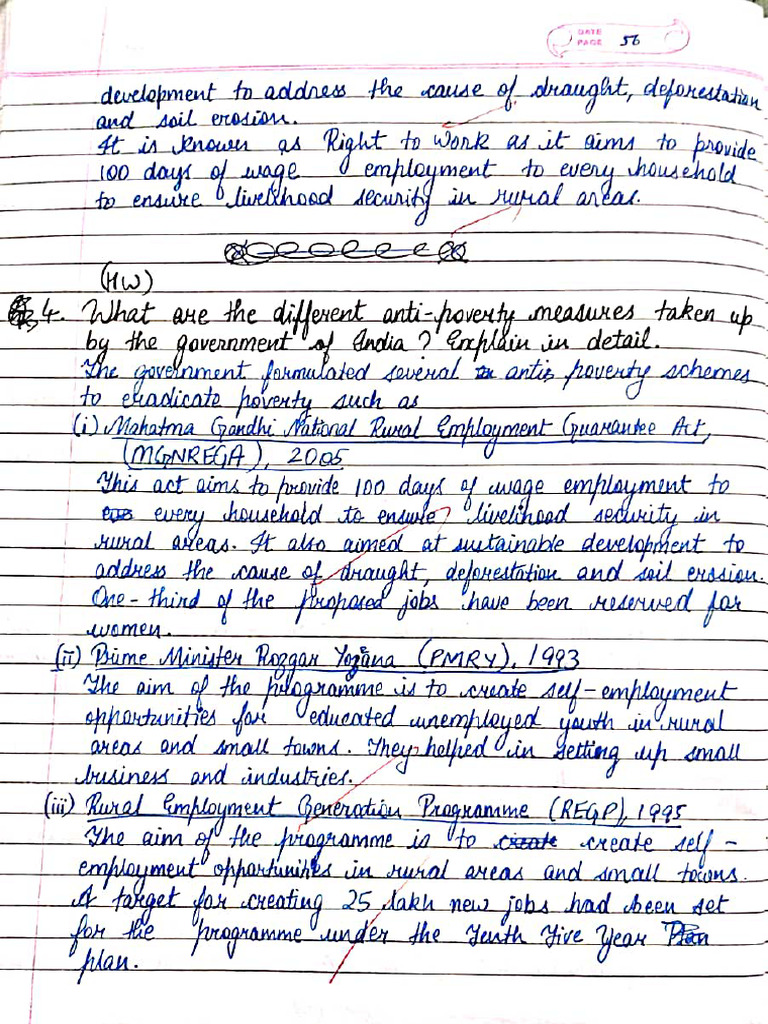 DATE
PAGE 56
development to address the cause of draught, deforestation
and soil erosion.
It is known as Right to Work as it aims to provide
100 days of wage employment to every household
to ensure livelihood security in rural areas.
(HW)
4. What are the different anti-poverty measures taken up
by the government of India? Explain in detail.
The government formulated several anti poverty schemes
to eradicate poverty such as
(i) Mahatma Gandhi National Rural Employment Guarantee Act,
(MGNREGA), 2005
This act aims to provide 100 days of wage employment to
every household to ensure livelihood security in
rural areas. It also aimed at sustainable development to
address the cause of draught, deforestation and soil erosion.
One-third of the proposed jobs have been reserved for
women.
(ii) Prime Minister Rozgar Yozana (PMRY), 1993
The aim of the programme is to create self-employment
opportunities for educated unemployed youth in rural
areas and small towns. They helped in setting up small
business and industries.
(iii) Rural Employment Generation Programme (REGP), 1995
The aim of the programme is to create self-
employment opportunities in rural areas and small towns.
A target for creating 25 lakh new jobs had been set
for the programme under the Tenth Five Year
plan.